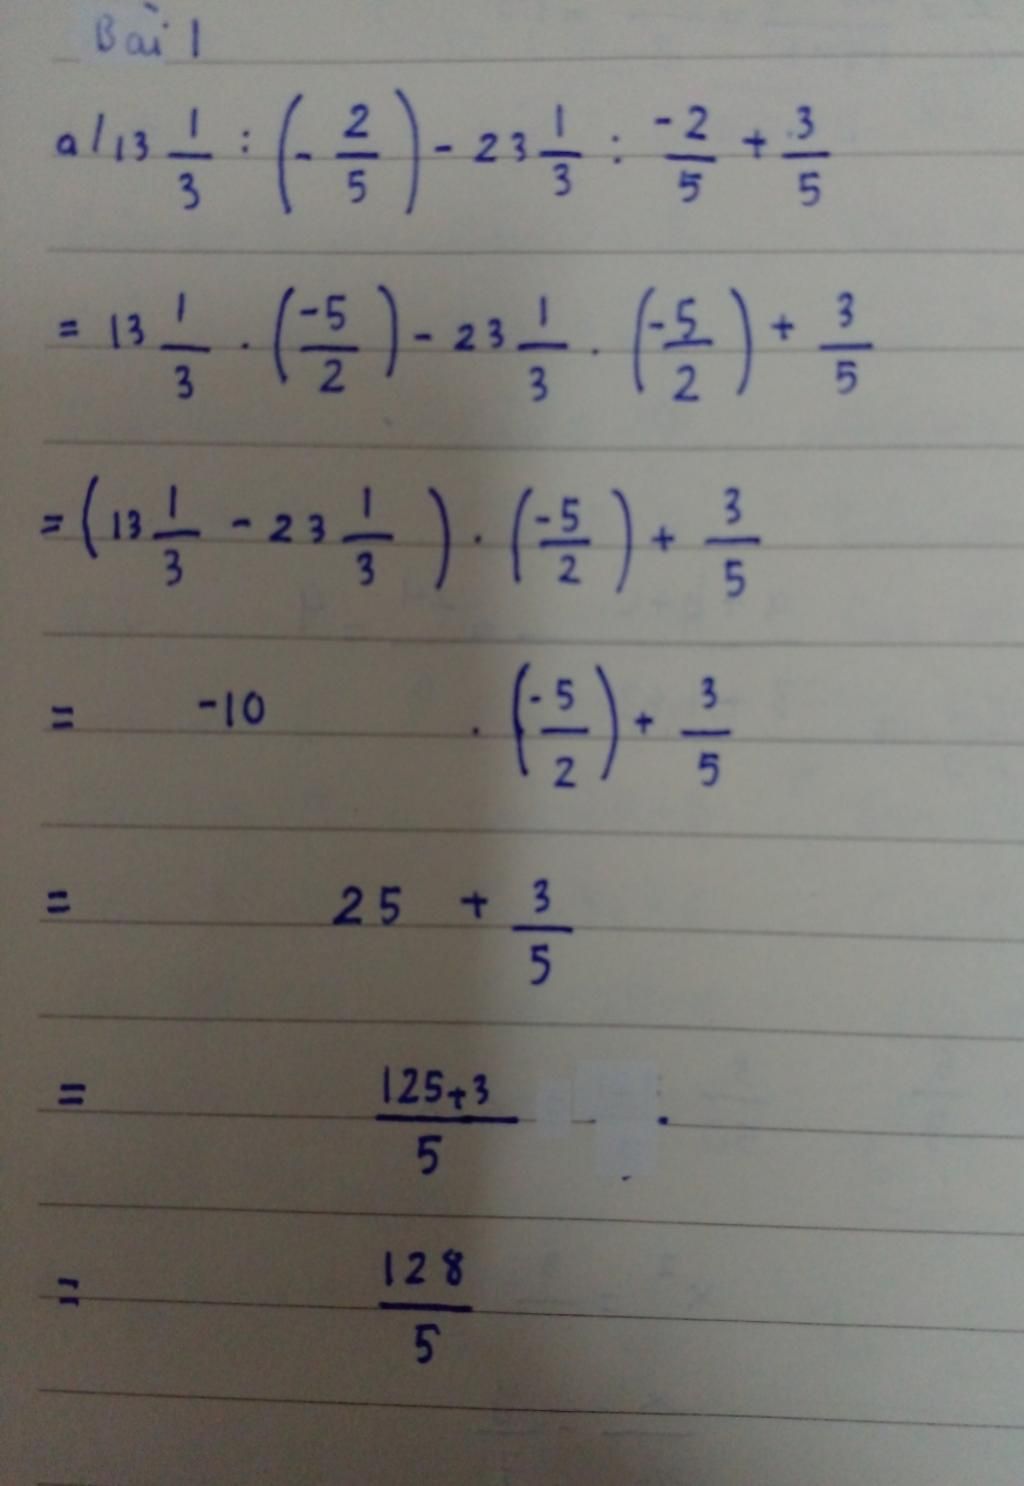 Bài 1
a/ 13 1/3 : (- 2/5) - 23 1/3 : -2/5 + 3/5
= 13 1/3 . (-5/2) - 23 1/3 . (-5/2) + 3/5
= (13 1/3 - 23 1/3) . (-5/2) + 3/5
= -10 . (-5/2) + 3/5
= 25 + 3/5
= 125+3/5
= 128/5